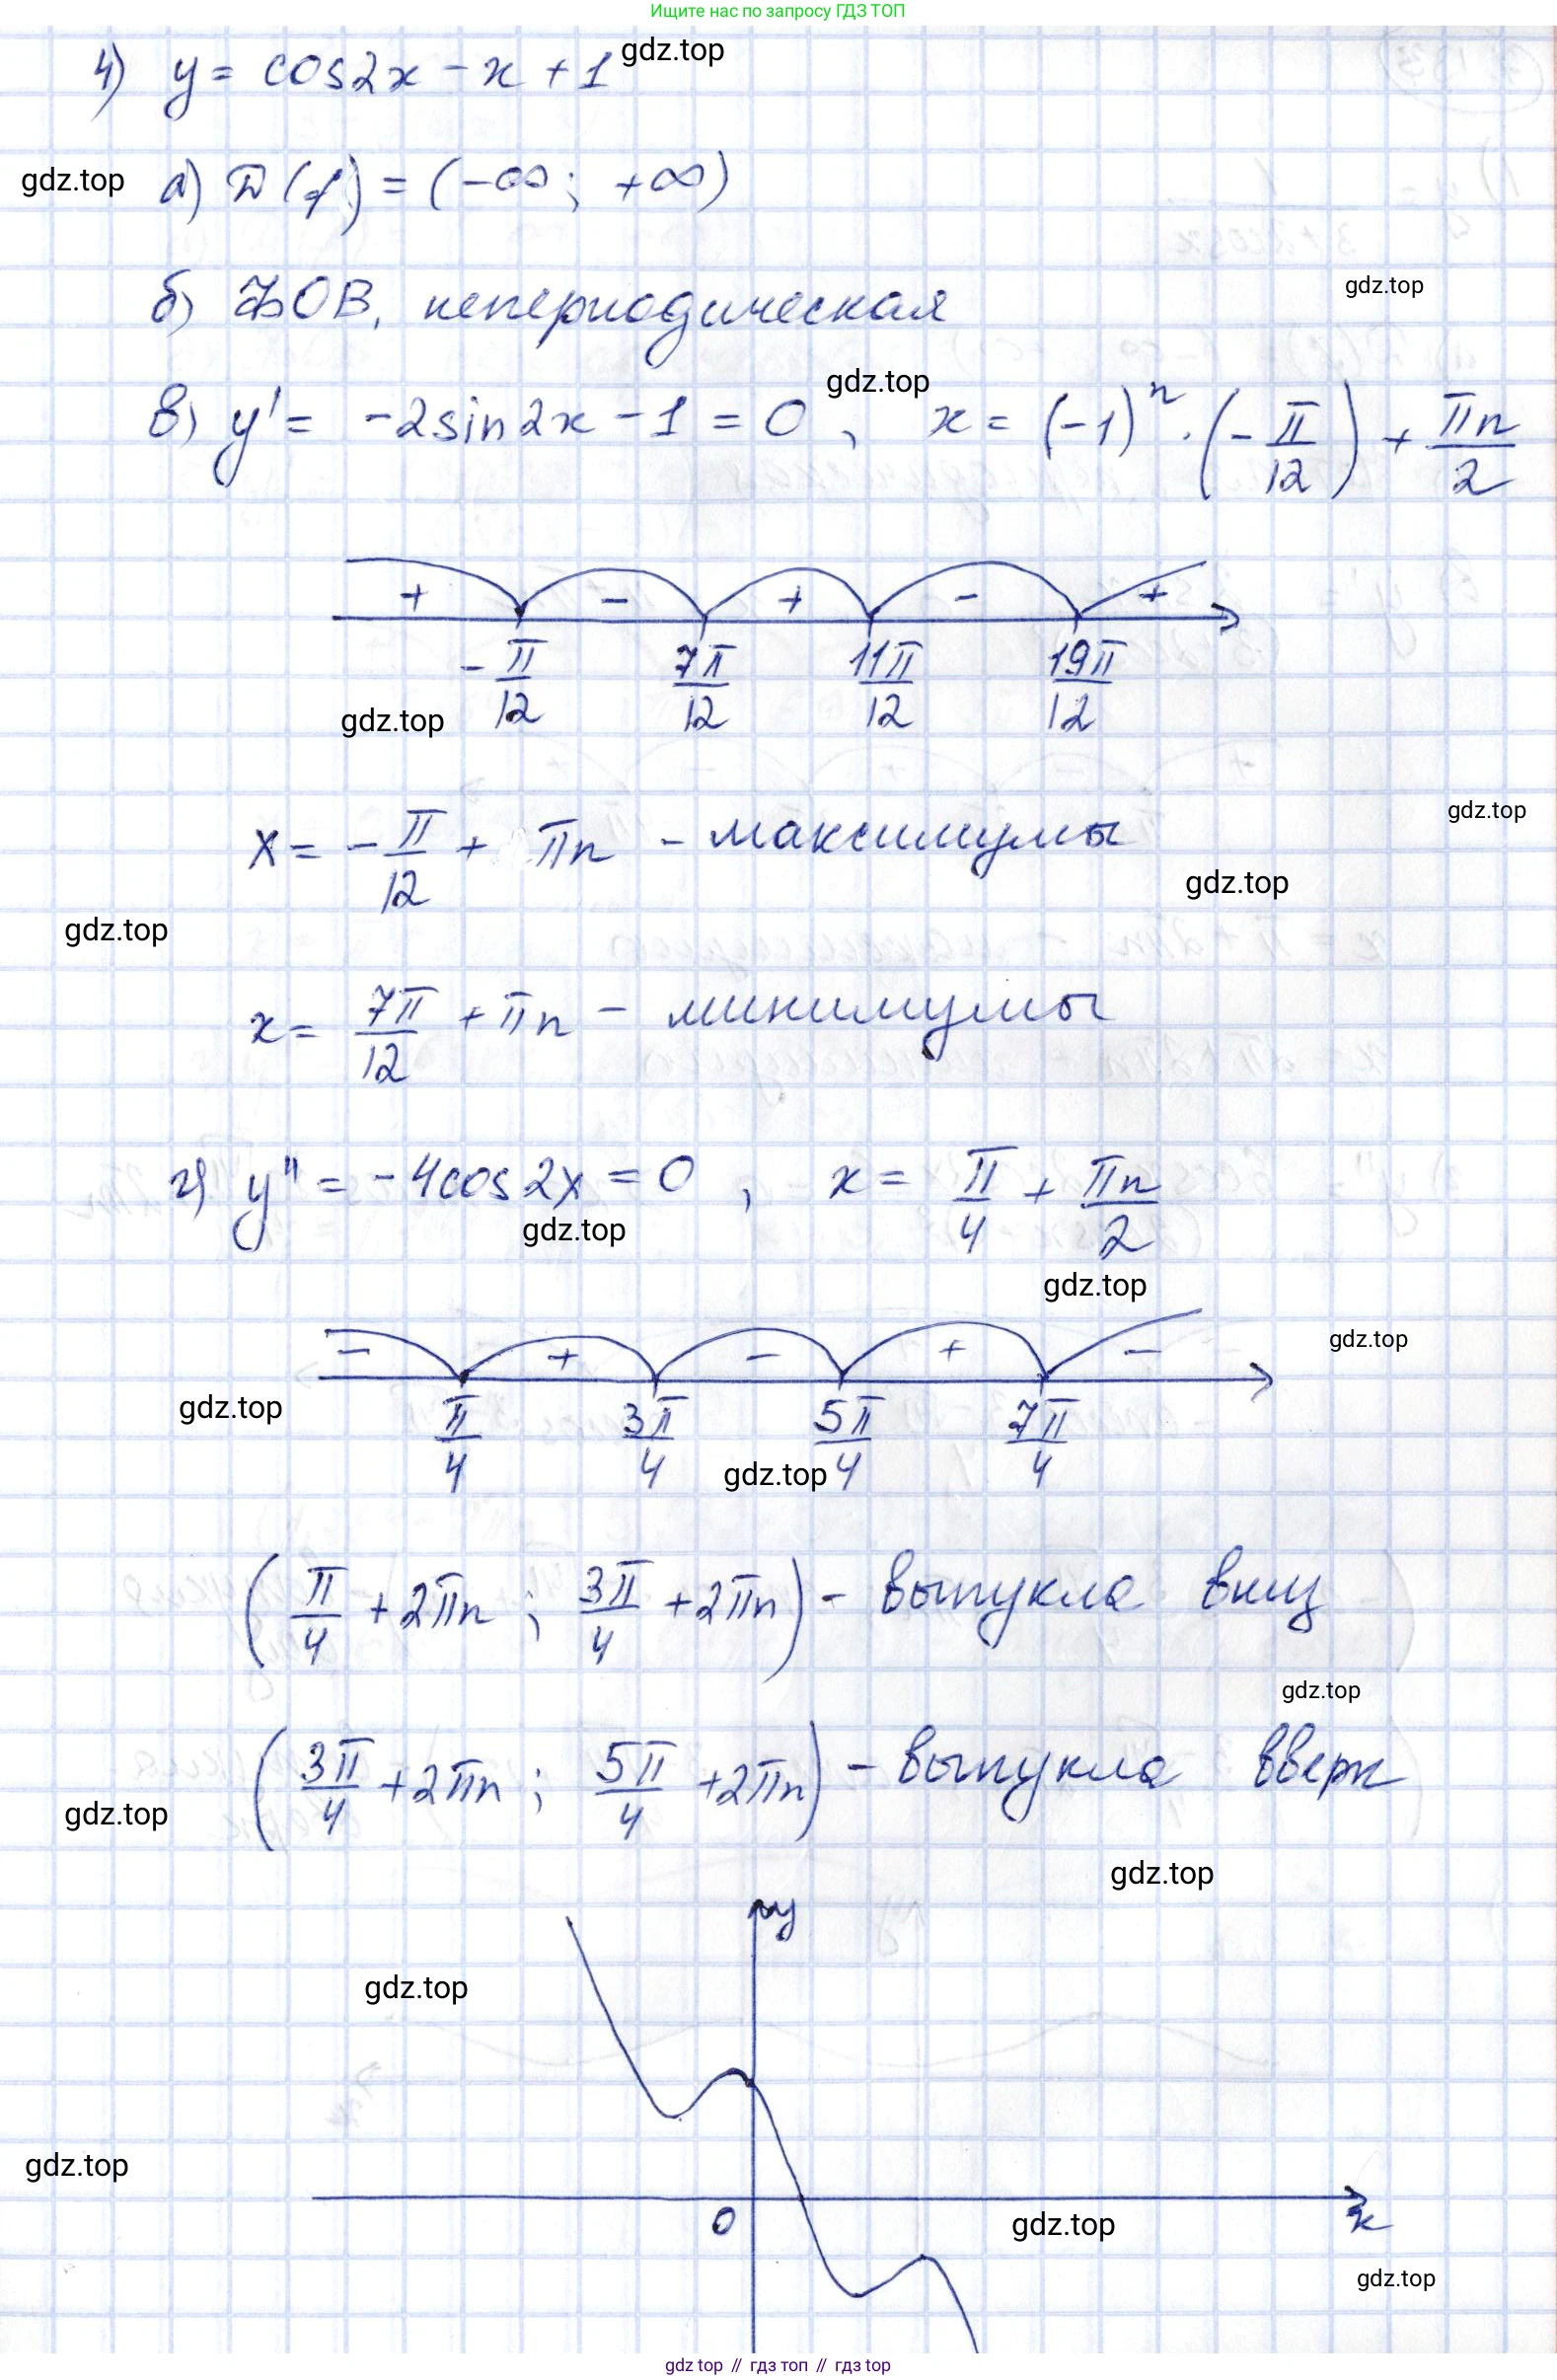 Ищите нас по запросу ГДЗ ТОП
4) y = cos2x - x + 1
gdz.top
gdz.top
а) D(f) = (-∞; +∞)
gdz.top
б) ФОВ, непериодическая
gdz.top
в) y' = -2sin2x - 1 = 0, x = (-1)^n · (-π/12) + πn/2
+ - + - +
-π/12 7π/12 11π/12 19π/12
gdz.top
gdz.top
x = -π/12 + πn - максимумы
gdz.top
gdz.top
x = 7π/12 + πn - минимумы
г) y'' = -4cos2x = 0, x = π/4 + πn/2
gdz.top
gdz.top
gdz.top
- + - + -
gdz.top
π/4 3π/4 5π/4 7π/4
gdz.top
(π/4 + 2πn; 3π/4 + 2πn) - выпукла вниз
gdz.top
(3π/4 + 2πn; 5π/4 + 2πn) - выпукла вверх
gdz.top
gdz.top
y
gdz.top
gdz.top
0
gdz.top
x
gdz.top
gdz top // гдз топ // гдз top